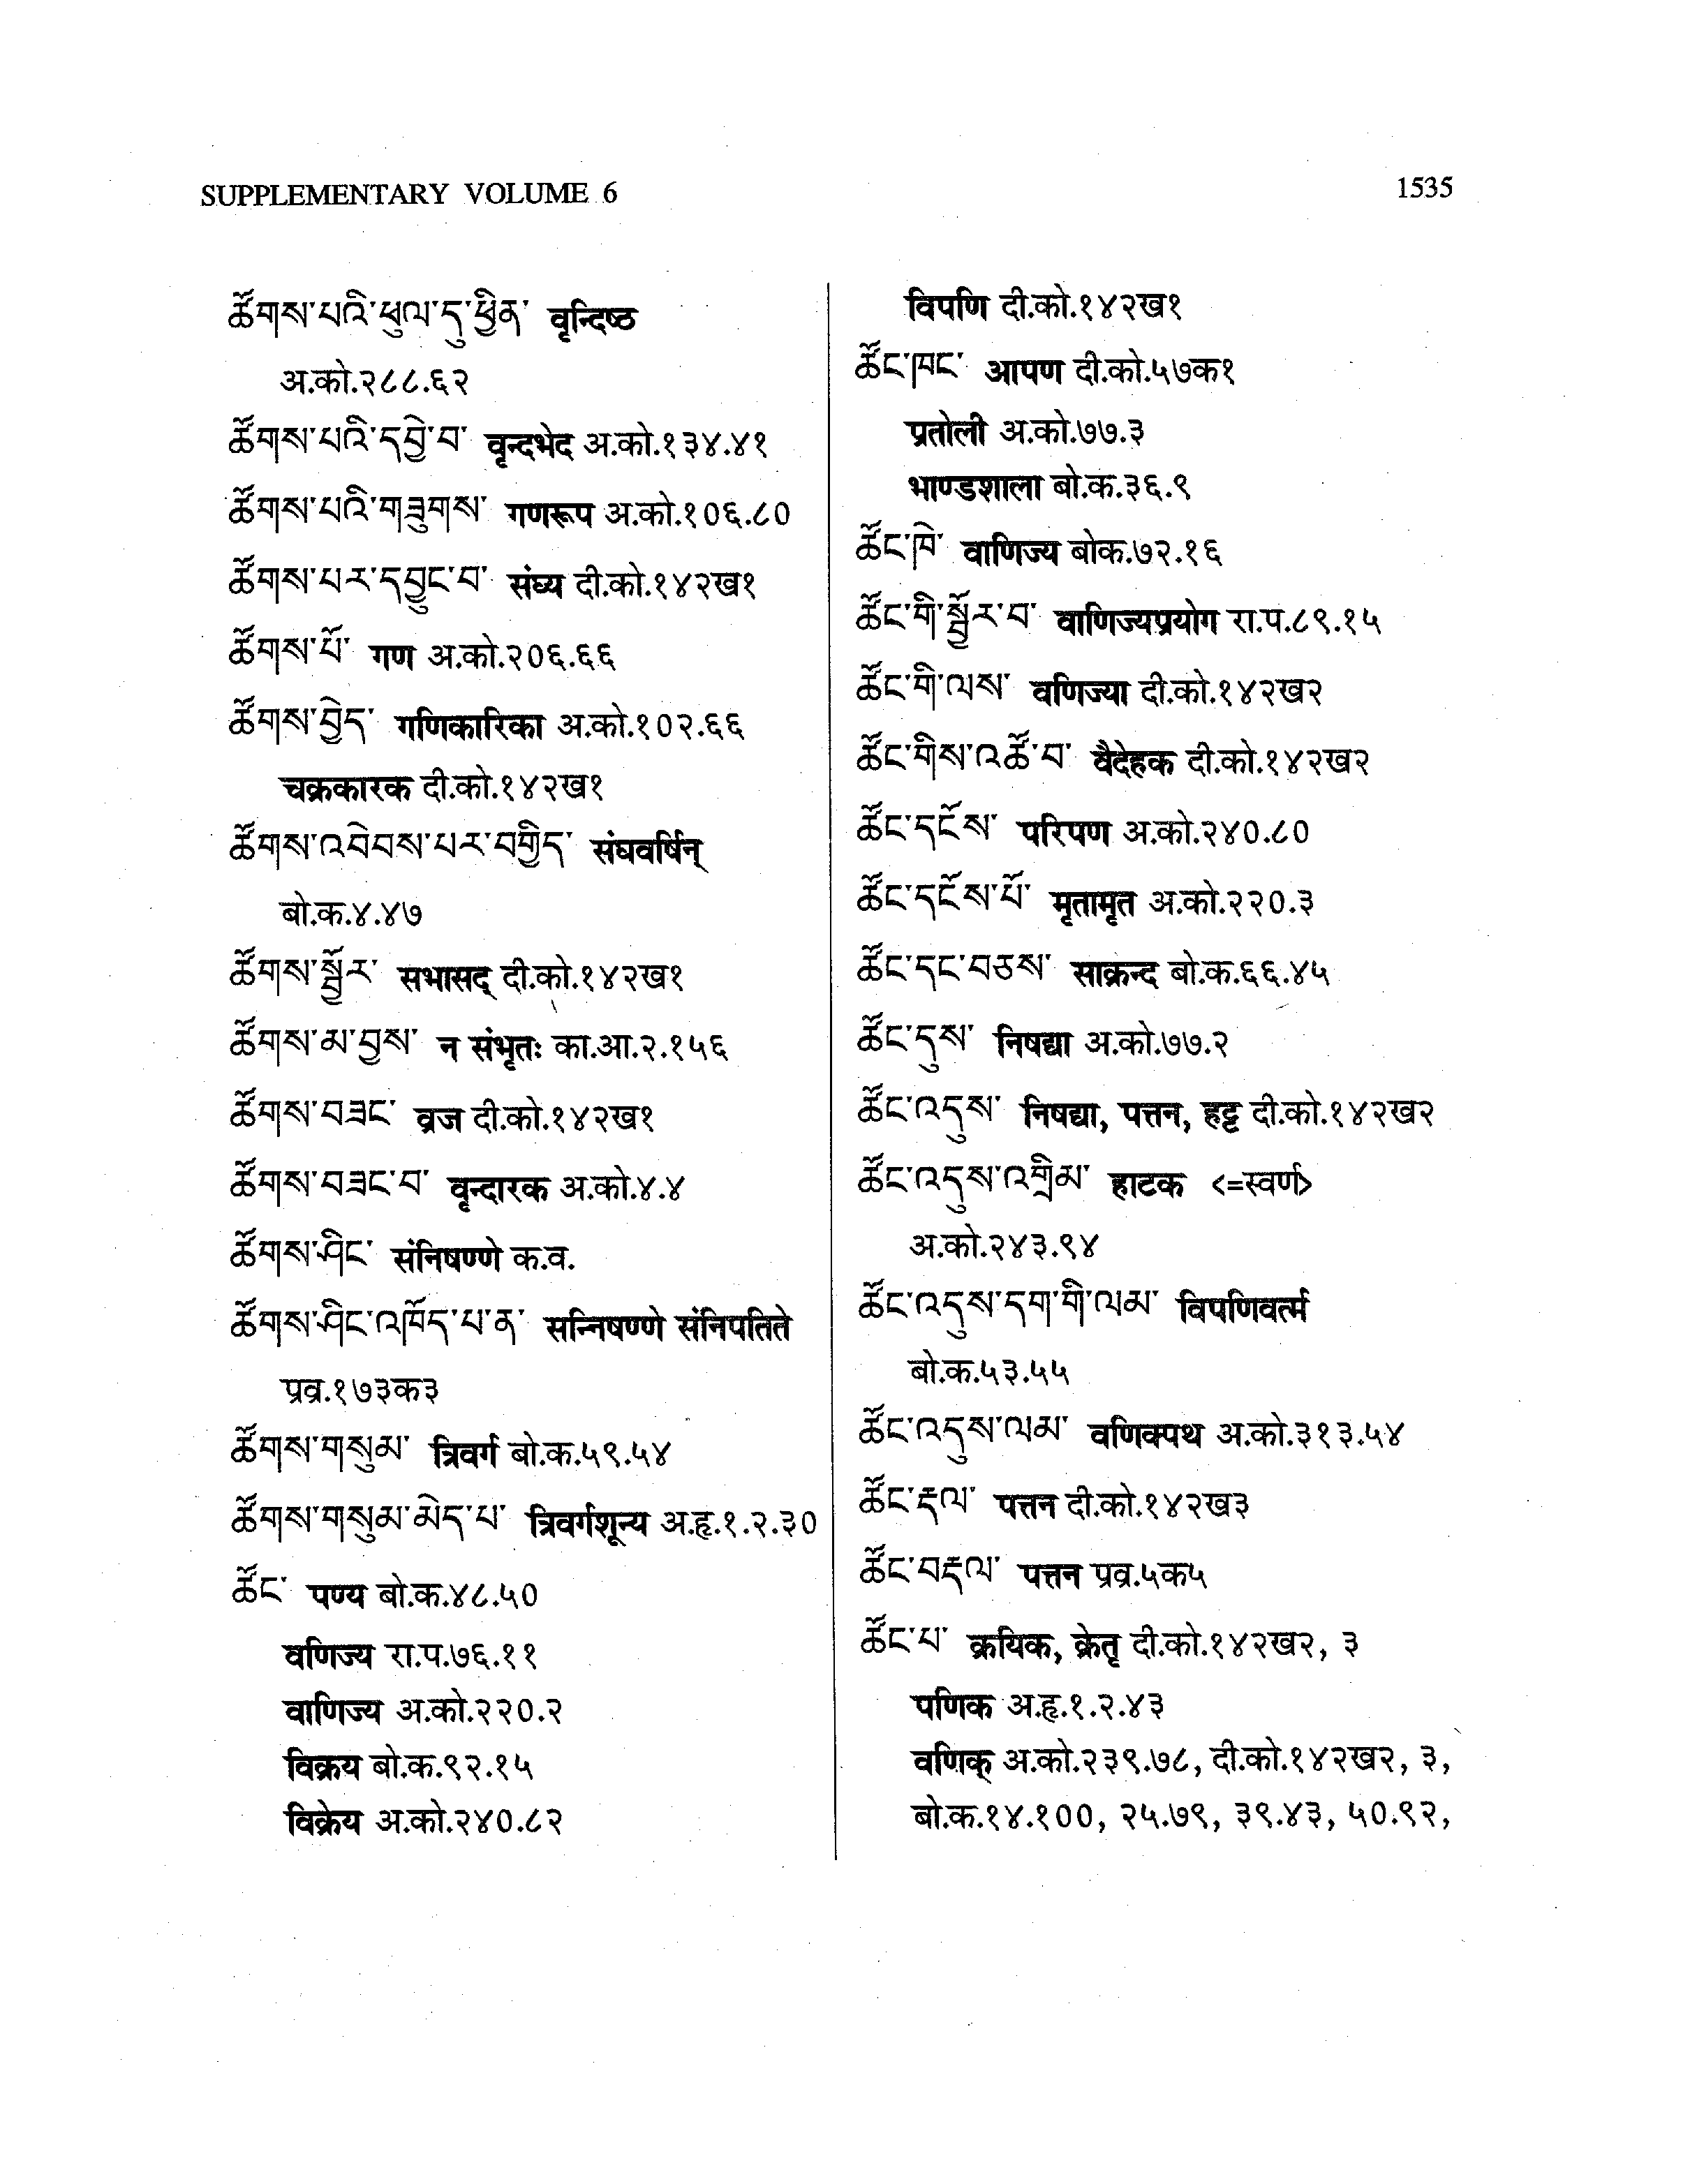 SUPPLEMENTARY VOLUME 6
1535
ཚོགས་པའི་ཕུལ་དུ་ཕྱིན་ वृन्दिष्ठ
अ.को.२८८.६२
ཚོགས་པའི་དབྱེ་བ་ वृन्दभेद अ.को.१३४.४१
ཚོགས་པའི་གཟུགས་ गणरूप अ.को.१०६.८०
ཚོགས་པར་དབྱུང་བ་ संघ्य दी.को.१४२ख१
ཚོགས་པོ་ गण अ.को.२०६.६६
ཚོགས་བྱེད་ गणिकारिका अ.को.१०२.६६
चक्रकारक दी.को.१४२ख१
ཚོགས་འབེབས་པར་བགྱིད་ संघवर्षिन्
बो.क.४.४७
ཚོགས་སྦྱོར་ सभासद् दी.को.१४२ख१
ཚོགས་མ་བྱས་ न संभृतः का.आ.२.१५६
ཚོགས་བཟང་ व्रज दी.को.१४२ख१
ཚོགས་བཟང་བ་ वृन्दारक अ.को.४.४
ཚོགས་ཤིང་ संनिषण्णे क.व.
ཚོགས་ཤིང་འཁོད་པ་ན་ सन्निषण्णे संनिपतिते
प्रव्र.१७३क३
ཚོགས་གསུམ་ त्रिवर्ग बो.क.५९.५४
ཚོགས་གསུམ་མེད་པ་ त्रिवर्गशून्य अ.हृ.१.२.३०
ཚོང་ पण्य बो.क.४८.५०
वणिज्य रा.प.७६.११
वाणिज्य अ.को.२२०.२
विक्रय बो.क.९२.१५
विक्रेय अ.को.२४०.८२
विपणि दी.को.१४२ख१
ཚོང་ཁང་ आपण दी.को.५७क१
प्रतोली अ.को.७७.३
भाण्डशाला बो.क.३६.९
ཚོང་ཁེ་ वाणिज्य बोक.७२.१६
ཚོང་གི་སྦྱོར་བ་ वाणिज्यप्रयोग रा.प.८९.१५
ཚོང་གི་ལས་ वणिज्या दी.को.१४२ख२
ཚོང་གིས་འཚོ་བ་ वैदेहक दी.को.१४२ख२
ཚོང་དངོས་ परिपण अ.को.२४०.८०
ཚོང་དངོས་པོ་ मृतामृत अ.को.२२०.३
ཚོང་དང་བཅས་ साक्रन्द बो.क.६६.४५
ཚོང་དུས་ निषद्या अ.को.७७.२
ཚོང་འདུས་ निषद्या, पत्तन, हट्ट दी.को.१४२ख२
ཚོང་འདུས་འགྲིམ་ हाटक <=स्वर्ण>
अ.को.२४३.९४
ཚོང་འདུས་དག་གི་ལམ་ विपणिवर्त्म
बो.क.५३.५५
ཚོང་འདུས་ལམ་ वणिक्पथ अ.को.३१३.५४
ཚོང་རྡལ་ पत्तन दी.को.१४२ख३
ཚོང་བརྡལ་ पत्तन प्रव्र.५क५
ཚོང་པ་ क्रयिक, क्रेतृ दी.को.१४२ख२, ३
पणिक अ.हृ.१.२.४३
वणिक् अ.को.२३९.७८, दी.को.१४२ख२, ३,
बो.क.१४.१००, २५.७९, ३९.४३, ५०.९२,